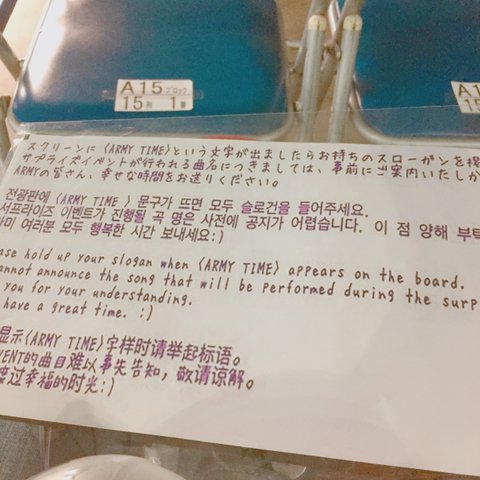 A15ブロック
15列 1番
A15
15
スクリーンに〈ARMY TIME〉という文字が出ましたらお持ちのスローガンを掲
サプライズイベントが行われる曲名につきましては、事前にご案内いたしか
ARMYの皆さん、幸せな時間をお送りください。
전광판에 〈ARMY TIME 〉 문구가 뜨면 모두 슬로건을 들어주세요.
서프라이즈 이벤트가 진행될 곡 명은 사전에 공지가 어렵습니다. 이 점 양해 부탁
아미 여러분 모두 행복한 시간 보내세요:)
ase hold up your slogan when 〈ARMY TIME〉 appears on the board.
annot announce the song that will be performed during the surp
you for your understanding.
have a great time. :)
显示〈ARMY TIME〉字样时请举起标语。
VENT的曲目难以事先告知，敬请谅解。
过幸福的时光:)